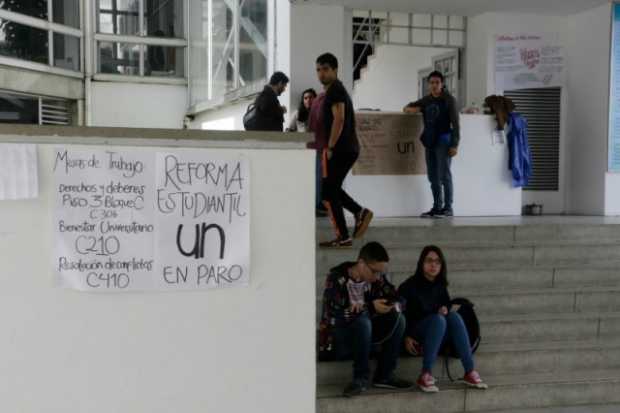 Mesas de Trabajo
Derechos y deberes
Piso 3 Bloque C
C 306
Bienestar Universitario
C210
Resolución de conflictos
C410
REFORMA
ESTUDIANTIL
un
EN PARO
un